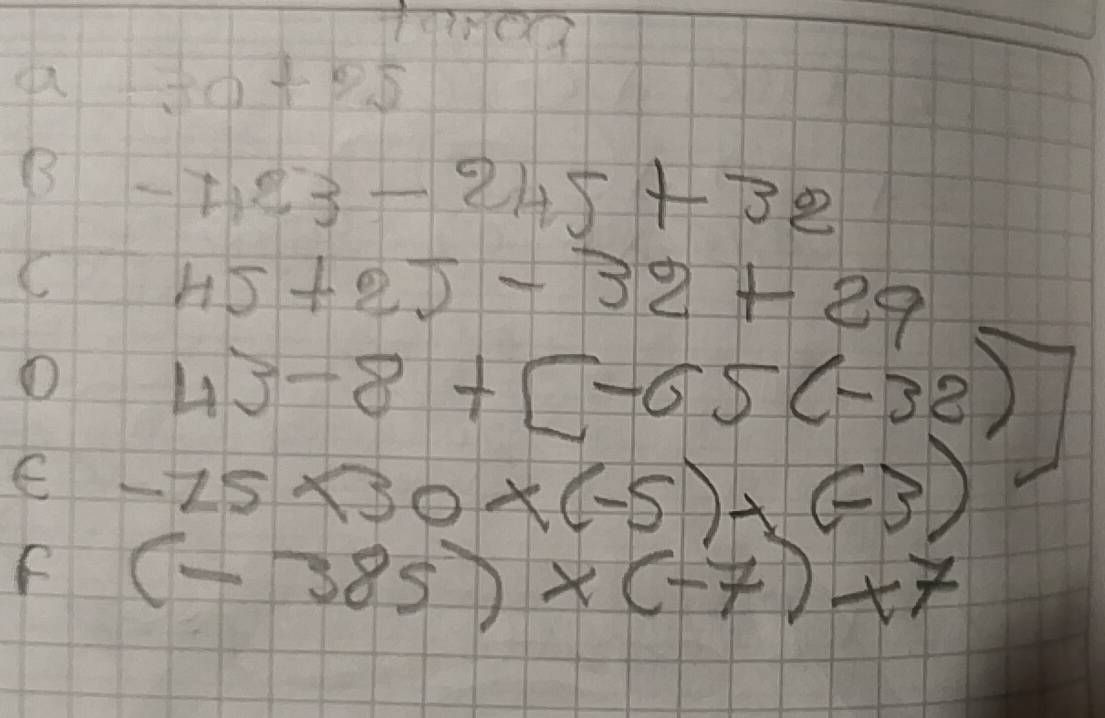 tarea
a -30 + 25
B -423 - 245 + 32
C 45 + 25 - 32 + 29
D 43 - 8 + [-65 (-32)]
E -15 x 30 x (-5) x (-3)
F (- 385) x (-7) x 7